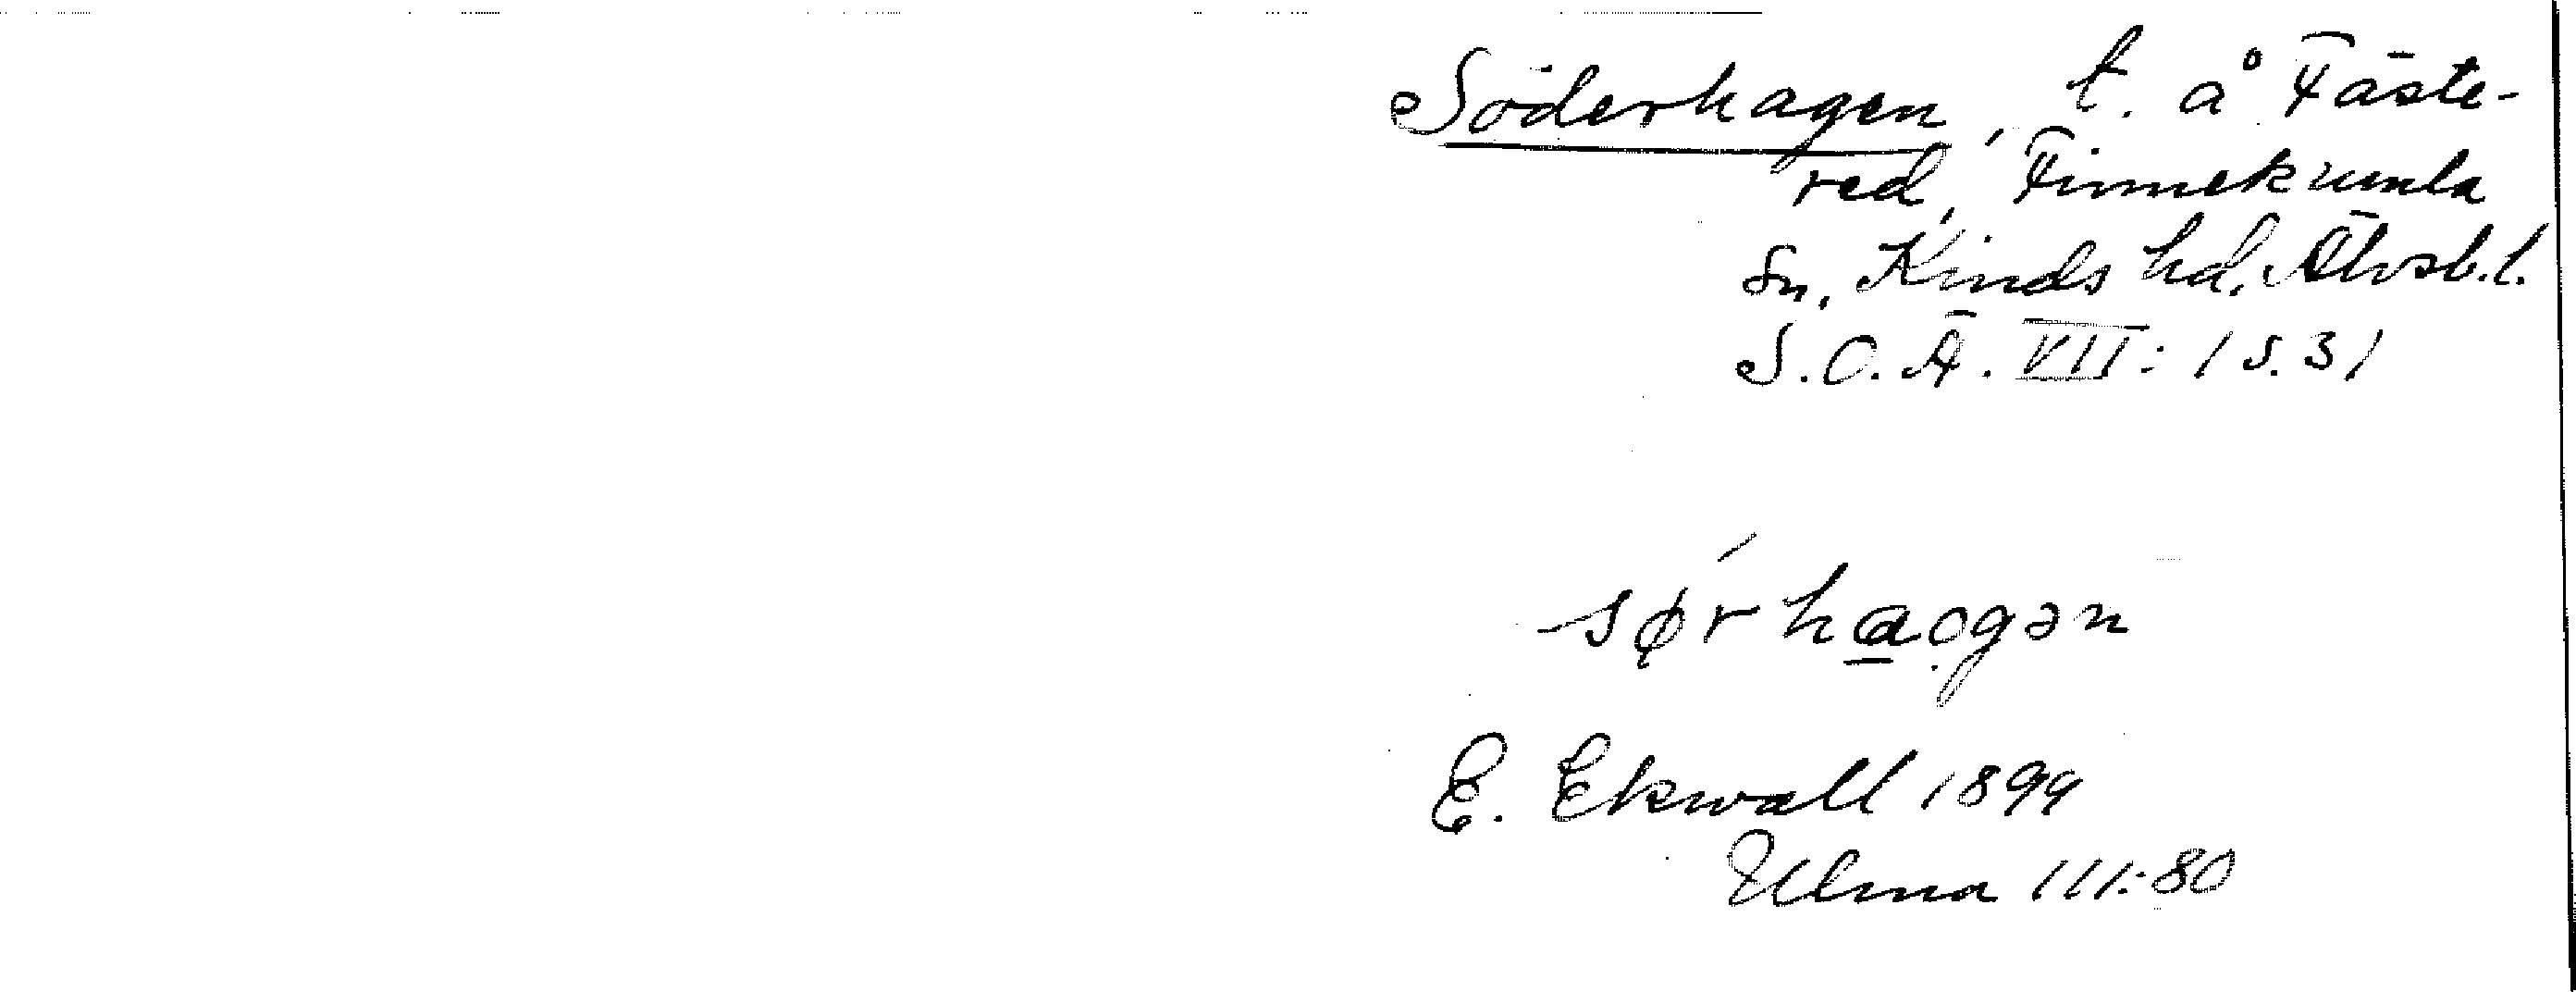 Söderhagen, t. å Fäste-
red, Finnekumla
sn, Kinds hd, Älvsb.l.
S.O.Ä. VII:1 s.31
sørhaogən
E. Ekwall 1899
Ulma 111:80